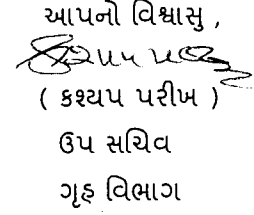 આપનો વિશ્વાસુ,
( કશ્યપ પરીખ )
ઉપ સચિવ
ગૃહ વિભાગ